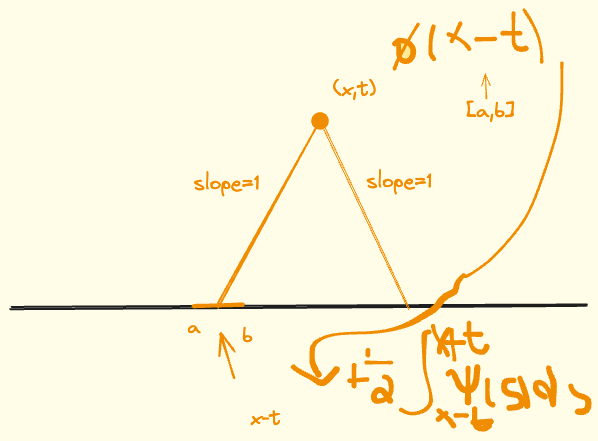 ϕ(x-t)
(x,t)
[a,b]
slope=1
slope=1
a
b
x-t
+ 1/2 ∫ x+t x-t ψ(s)ds